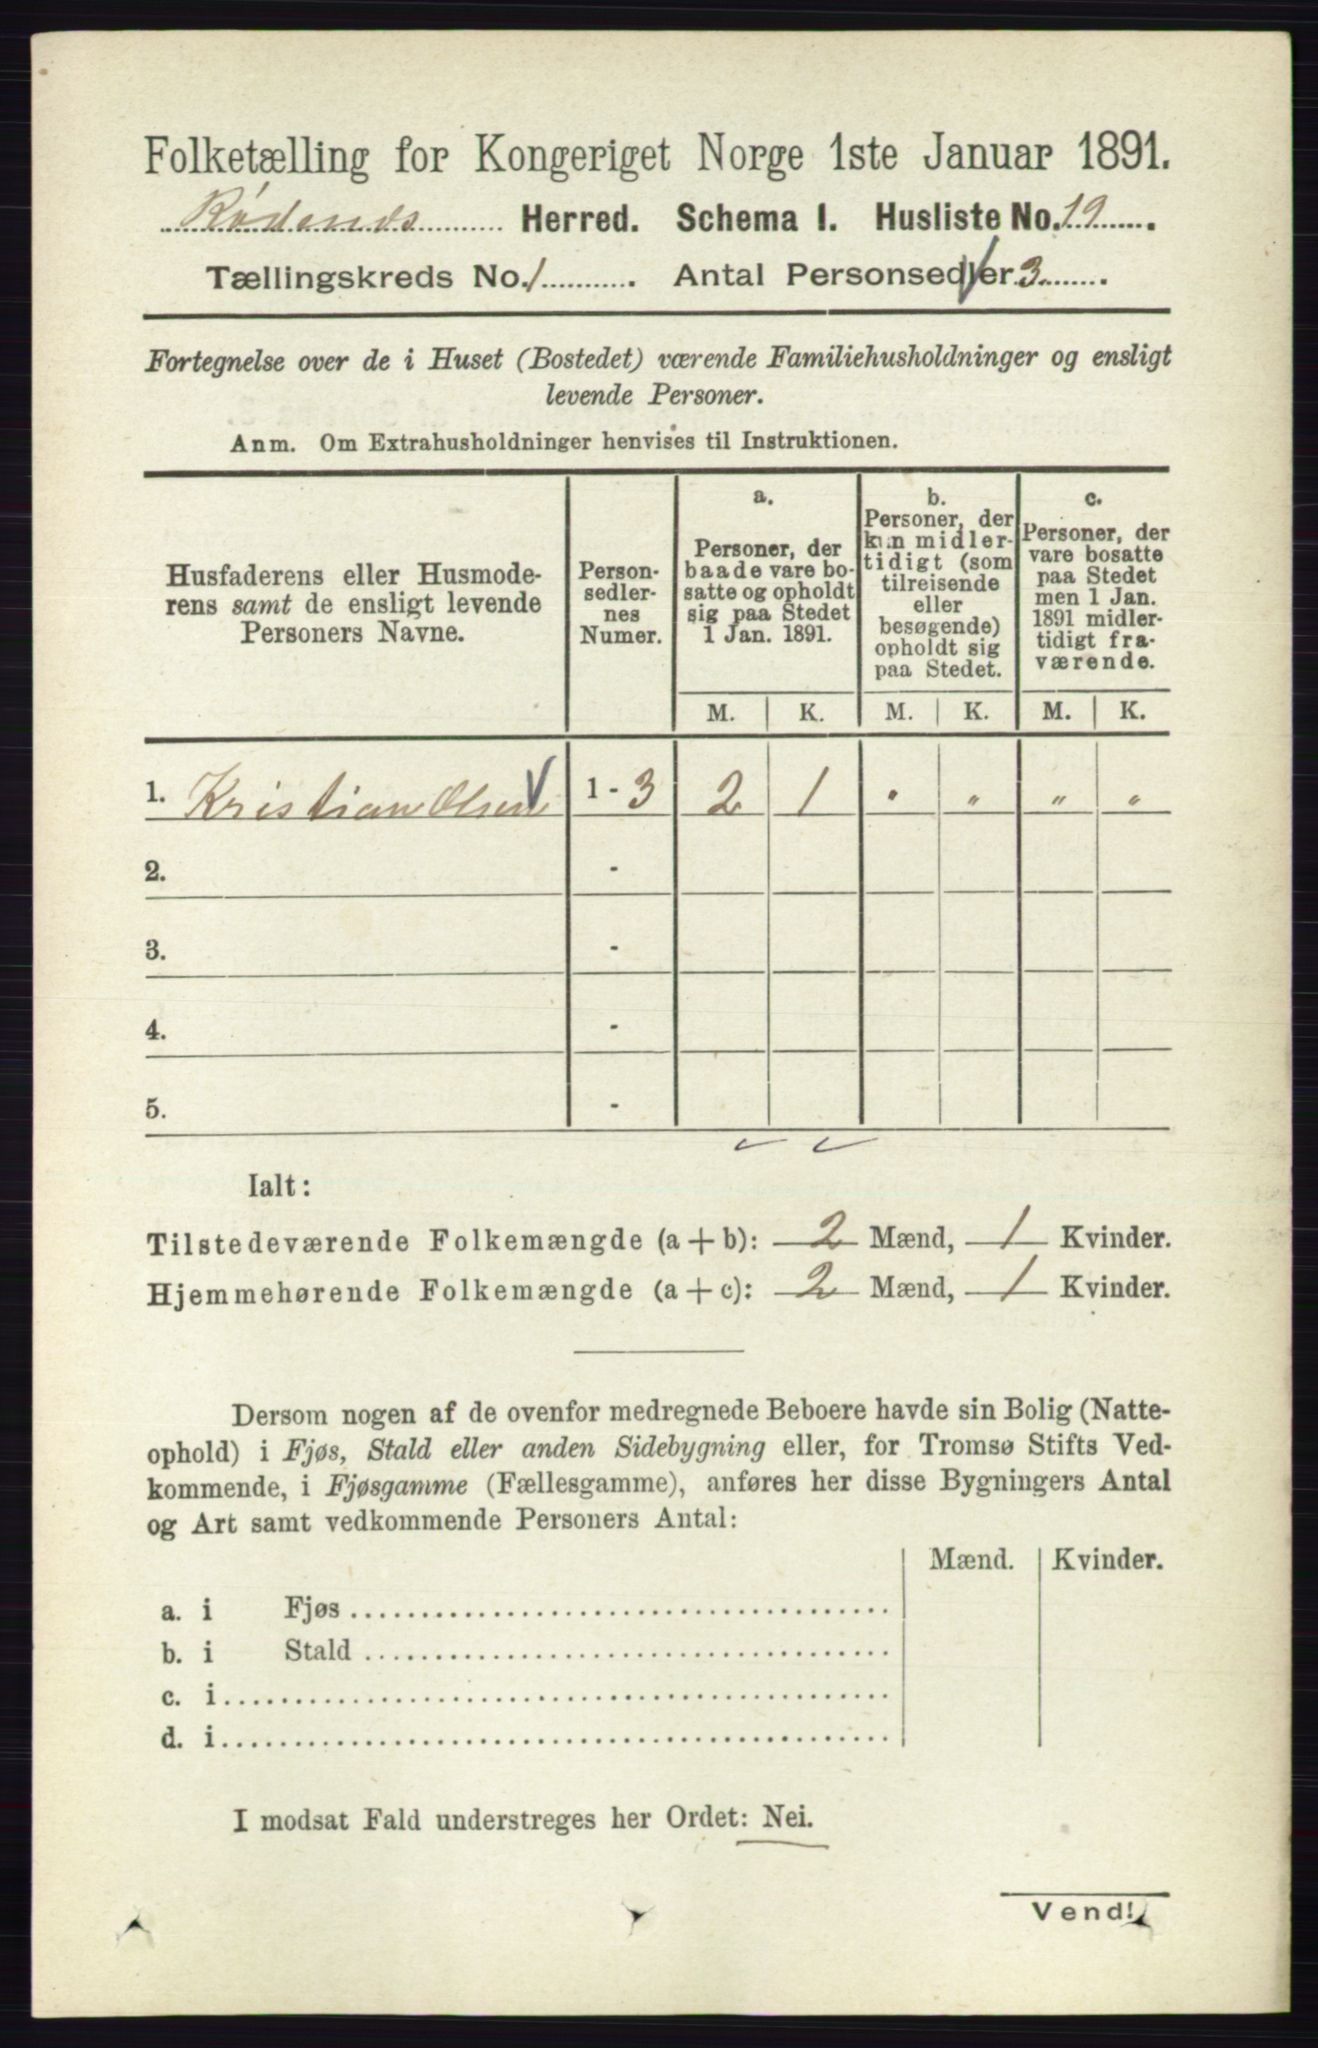 Folketælling for Kongeriget Norge 1ste Januar 1891.
Rødenes Herred. Schema I. Husliste No. 19.
Tællingskreds No. 1. Antal Personsedler 3.
Fortegnelse over de i Huset (Bostedet) værende Familiehusholdninger og ensligt
levende Personer.
Anm. Om Extrahusholdninger henvises til Instruktionen.
Husfaderens eller Husmode-
rens samt de ensligt levende
Personers Navne.
Person-
sedler-
nes
Numer.
a.
Personer, der
baade vare bo-
satte og opholdt
sig paa Stedet
1 Jan. 1891.
b.
Personer, der
kun midler-
tidigt (som
tilreisende
eller
besøgende)
opholdt sig
paa Stedet.
c.
Personer, der
vare bosatte
paa Stedet
men 1 Jan.
1891 midler-
tidigt fra-
værende.
M. K. M. K. M. K.
1. Kristian Olsen 1 - 3 2 1 " " " "
2. -
3. -
4. -
5. -
Ialt:
Tilstedeværende Folkemængde (a + b): 2 Mænd, 1 Kvinder.
Hjemmehørende Folkemængde (a + c): 2 Mænd, 1 Kvinder.
Dersom nogen af de ovenfor medregnede Beboere havde sin Bolig (Natte-
ophold) i Fjøs, Stald eller anden Sidebygning eller, for Tromsø Stifts Ved-
kommende, i Fjøsgamme (Fællesgamme), anføres her disse Bygningers Antal
og Art samt vedkommende Personers Antal:
Mænd. Kvinder.
a. i Fjøs
b. i Stald
c. i
d. i
I modsat Fald understreges her Ordet: Nei.
Vend!